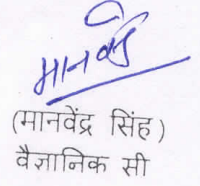 मानवेंद्र
(मानवेंद्र सिंह)
वैज्ञानिक सी